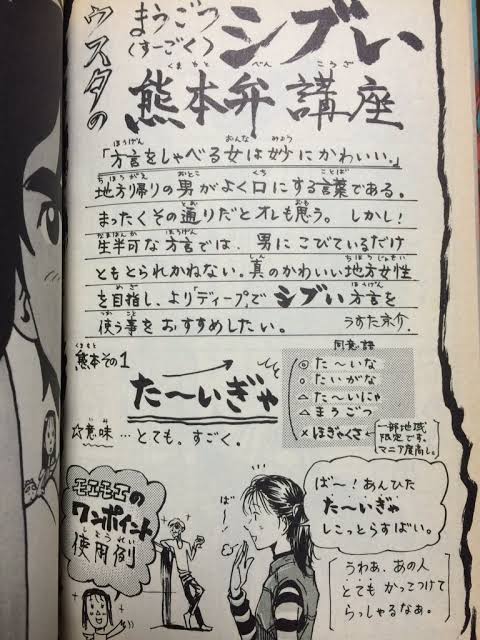 ウスタの
まうごつ
(すーごく)
シブい
熊本弁講座
「方言をしゃべる女は妙にかわいい。」
地方帰りの男がよく口にする言葉である。
まったくその通りだとオレも思う。しかし！
生半可な方言では、男にこびているだけ
ともとられかねない。真のかわいい地方女性
を目指し、より「ディープ」でシブい方言を
使う事をおすすめしたい。 うすた京介.
熊本その1
た〜いぎゃ
☆意味…とても。すごく。
同意語
◎ た〜いな
○ たいがな
△ た〜いにゃ
△ まうごつ
× ほぎゃくさ
一部地域
限定です。
マニア度高し。
モエモエの
ワンポイント
使用例
ば〜！
ば〜！あんひた
た〜いぎゃ
しこっとらすばい。
うわぁ、あの人
とてもかっこつけて
らっしゃるなぁ。